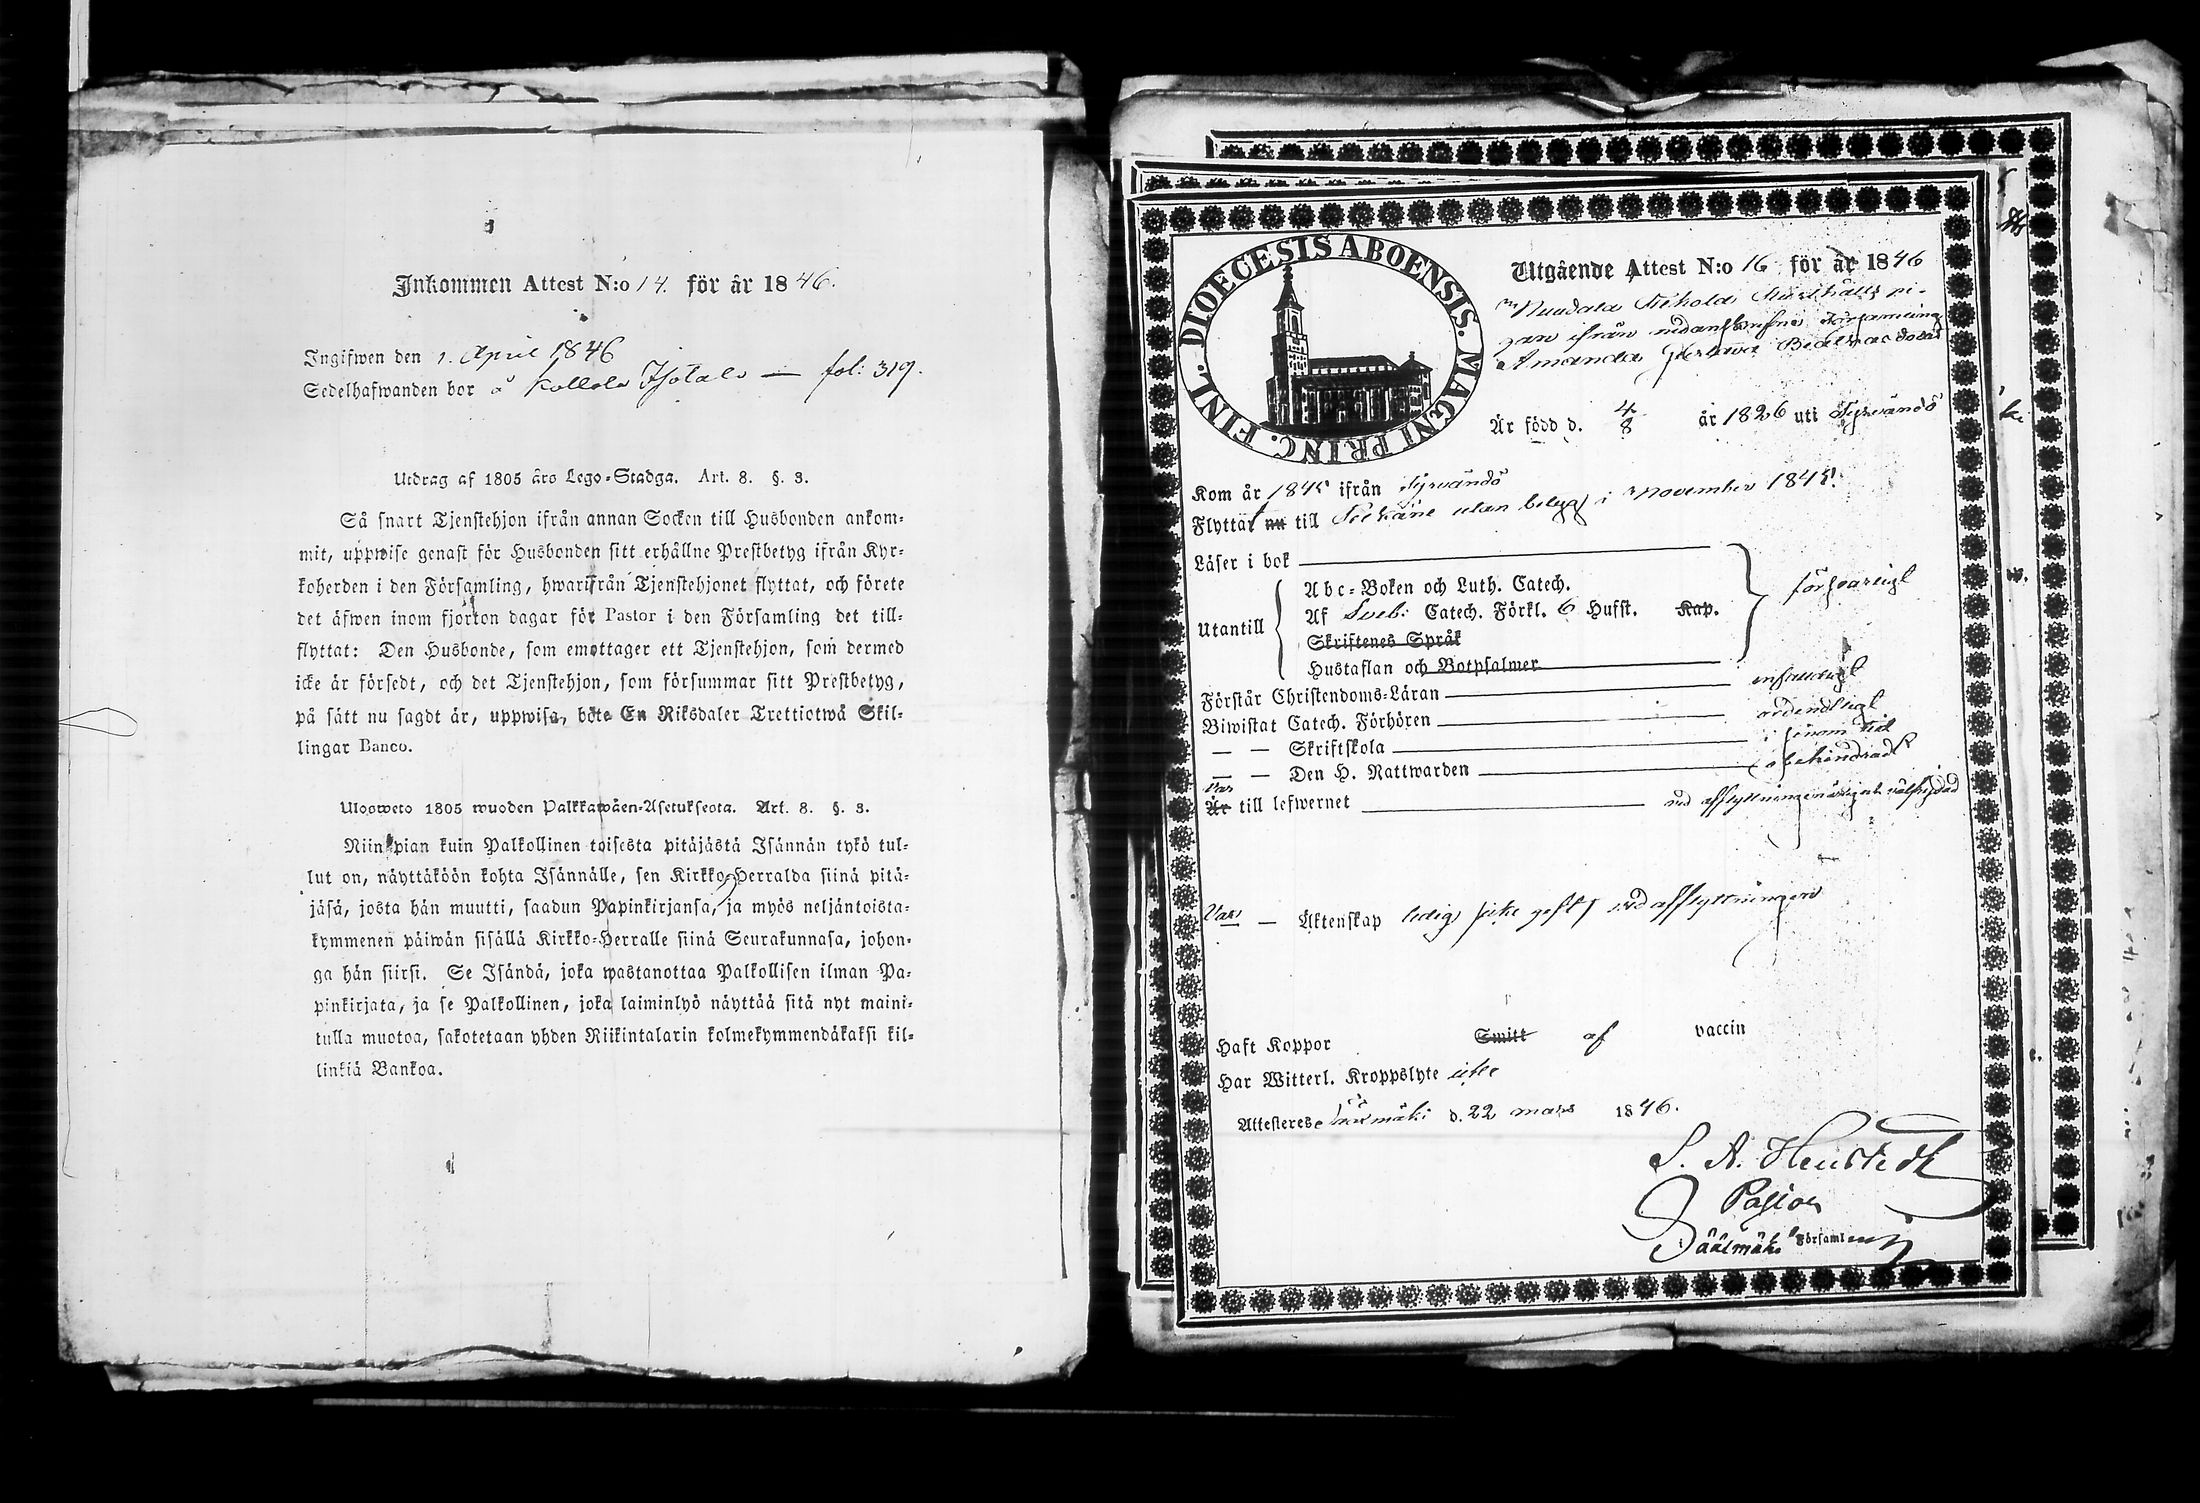 Inkommen Attest N:o 14. för år 1846.
Ingifwen den 1. April 1846
Sedelhafwanden bor å Kallela Isotalo — fol: 319.
Utdrag af 1805 års Lego-Stadga. Art. 8. §. 3.
Så snart Tjenstehjon ifrån annan Socken till Husbonden ankom-
mit, uppwise genast för Husbonden sitt erhållne Prestbetyg ifrån Kyr-
koherden i den Församling, hwarifrån Tjenstehjonet flyttat, och förete
det äfwen inom fjorton dagar för Pastor i den Församling det till-
flyttat: Den Husbonde, som emottager ett Tjenstehjon, som dermed
icke är försedt, och det Tjenstehjon, som försummar sitt Prestbetyg,
på sätt nu sagdt är, uppwisa, böte En Riksdaler Trettiotwå Skil-
lingar Banco.
Ulosweto 1805 wuoden Palkkawäen-Asetuksesta. Art. 8. §. 3.
Niin pian kuin Palkollinen toisesta pitäjästä Isännän tykö tul-
lut on, näyttäköön kohta Isännälle, sen Kirkko-Herralda siinä pitä-
jäsä, josta hän muutti, saadun Papinkirjansa, ja myös neljäntoista-
kymmenen päiwän sisällä Kirkko-Herralle siinä Seurakunnasa, johon-
ga hän siirsi. Se Isändä, joka wastanottaa Palkollisen ilman Pa-
pinkirjata, ja se Palkollinen, joka laiminlyö näyttää sitä nyt maini-
tulla muotoa, sakotetaan yhden Riikintalarin kolmekymmendäkaksi kil-
linkiä Bankoa.
DIOECESIS ABOENSIS. MAGNI PRINC. FINL.
Utgående Attest N:o 16 för år 1846
pi-
gan ifrån nedanskrifne Församling
Amanda Gustava
Är född d. 4/8 år 1826 uti Tyrvändö
Kom år 1845 ifrån Tyrvändö
Flyttat nu till utan betyg i November 1845.
Läser i bok
Utantill
Abc-Boken och Luth. Catech.
Af Sveb: Catech. Förkl. 6 Hufst. Kap.
Skriftenes Språk
Hustaflan och Botpsalmer
försvarligt
Förstår Christendoms-Läran enfaldigt
Biwistat Catech. Förhören ordentligt
— — Skriftskola i sinom tid
— — Den H. Nattwarden obehindradt
Var
Är till lefwernet vid afflyttningen
Var — Äktenskap ledig icke gift vid afflyttningen
Haft Koppor Smitt af vaccin
Har Witterl. Kroppslyte icke
Attesteres Sääxmäki d. 22 mars 1846.
Pastor
i Sääxmäki Församling